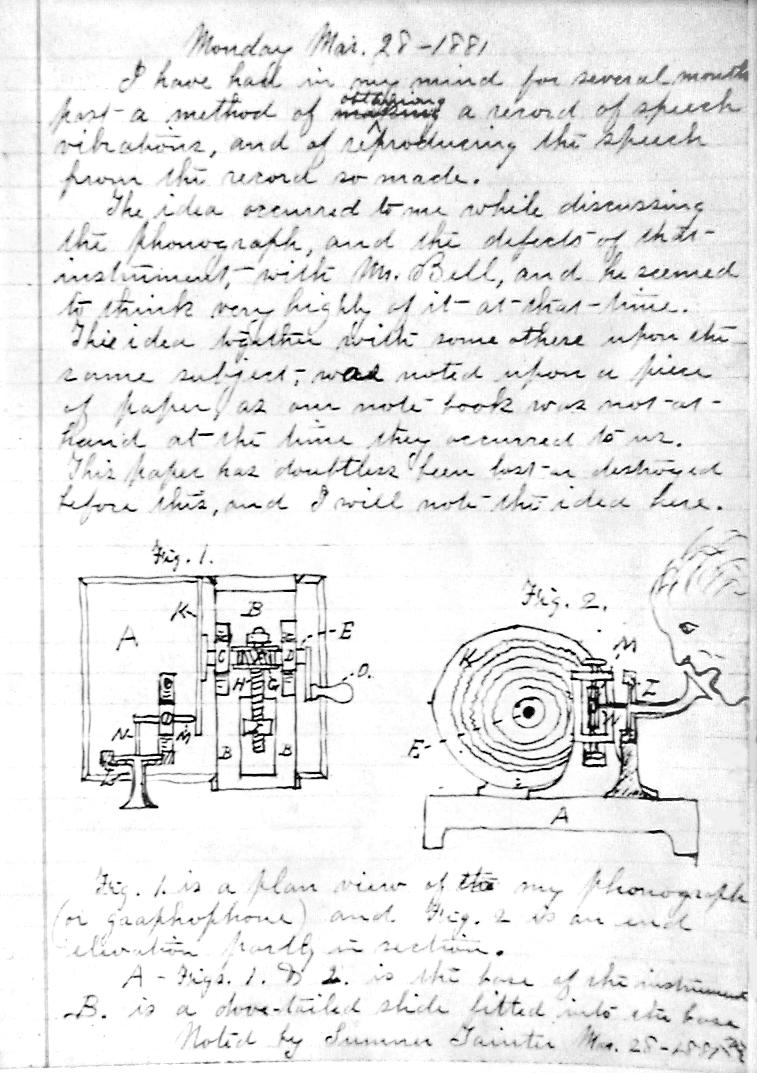 Monday Mar. 28-1881
I have had in my mind for several months
past a method of obtaining a record of speech
vibrations, and of reproducing the speech
from the record so made.
The idea occurred to me while discussing
the phonograph, and the defects of that
instrument, with Mr. Bell, and he seemed
to think very highly of it at that time.
This idea together with some others upon the
same subject, was noted upon a piece
of paper, as our note book was not at
hand at the time they occurred to us.
This paper has doubtless been lost or destroyed
before this, and I will note the idea here.
Fig. 1.
Fig. 2.
A K B E C D O. H G F N M L B B
K M L N E A
Fig. 1. is a plan view of the my phonograph
(or graphophone) and Fig. 2 is an end
elevation partly in section.
A - Figs. 1. & 2. is the base of the instrument
B. is a dove-tailed slide fitted into the base
Noted by Sumner Tainter Mar. 28-1881